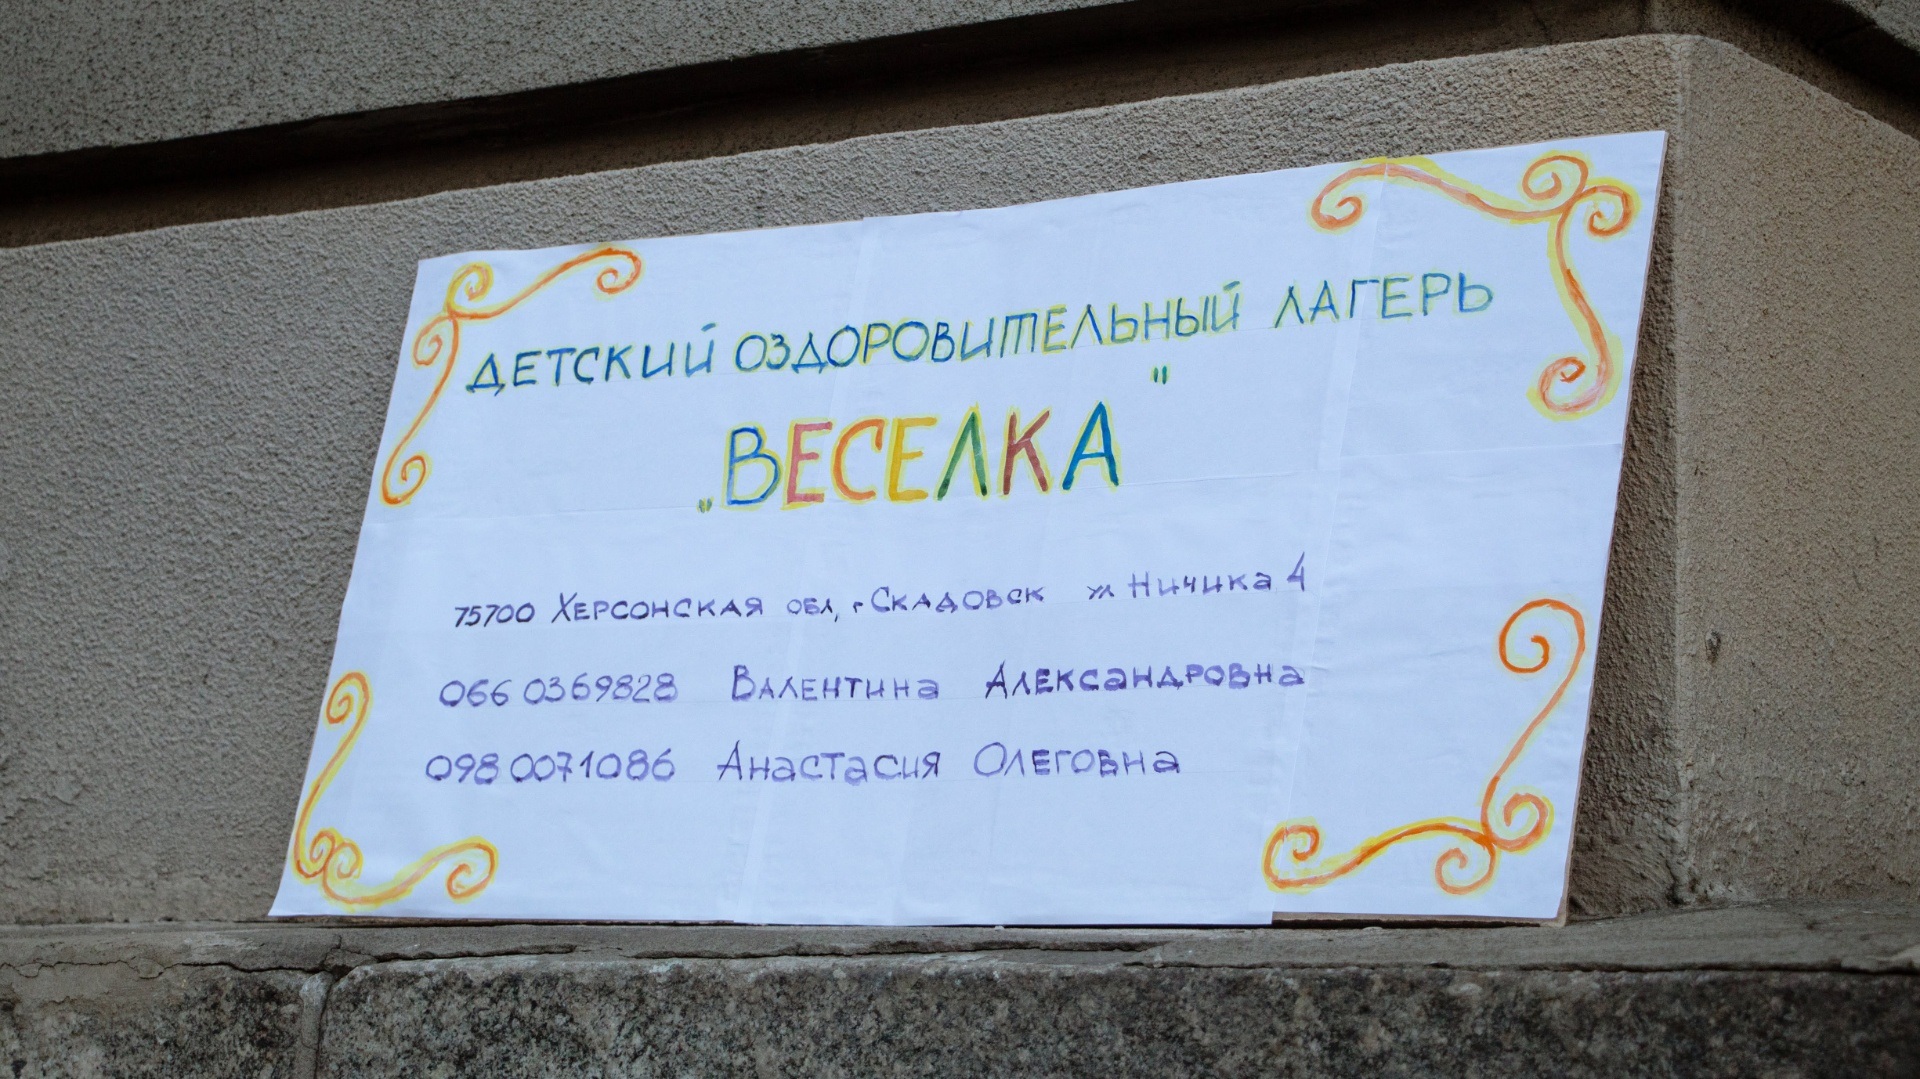 ДЕТСКИЙ ОЗДОРОВИТЕЛЬНЫЙ ЛАГЕРЬ
„ВЕСЕЛКА"
75700 ХЕРСОНСКАЯ ОБЛ, г СКАДОВСК ул НИЧИКА 4
066 0369828 ВАЛЕНТИНА АЛЕКСАНДРОВНА
098 0071086 АНАСТАСИЯ ОЛЕГОВНА